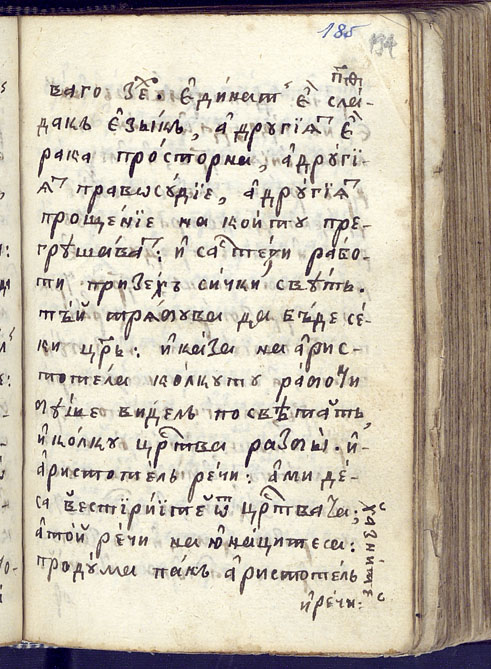 185
194
ваго зе҃. є҆динат є҆ сла́-
дакъ є҆зы́къ, а҆ дрꙋгїѧ є҆
рака про́сторна, а҆ дрꙋгї-
ѧ правѡсꙋ́дїе, а҆ дрꙋ́гїѧ
проще́нїе на кои́тꙋ пре-
грꙋша́ва: и҆ са тези рабо-
ти призехъ си́чки свѣтъ.
тъ́й трѧбꙋва да бъ́де се́-
ки цр҃ь: и҆ ка́за на а҆рис-
тоте́ла ко́лкꙋтꙋ ра́бѡти
бѣ́ше виде́лъ по свѣ́тать,
и҆ ко́лкꙋ цр҃тва разби. и҆
а҆ристоте́ль ре́чи: а҆ми де́-
са цр҃тва та;
а҆ той ре́чи на ю҆на́цитеса:
хазнїте
проду́ма пакъ а҆ристо́тель
и҆ ре́чи: